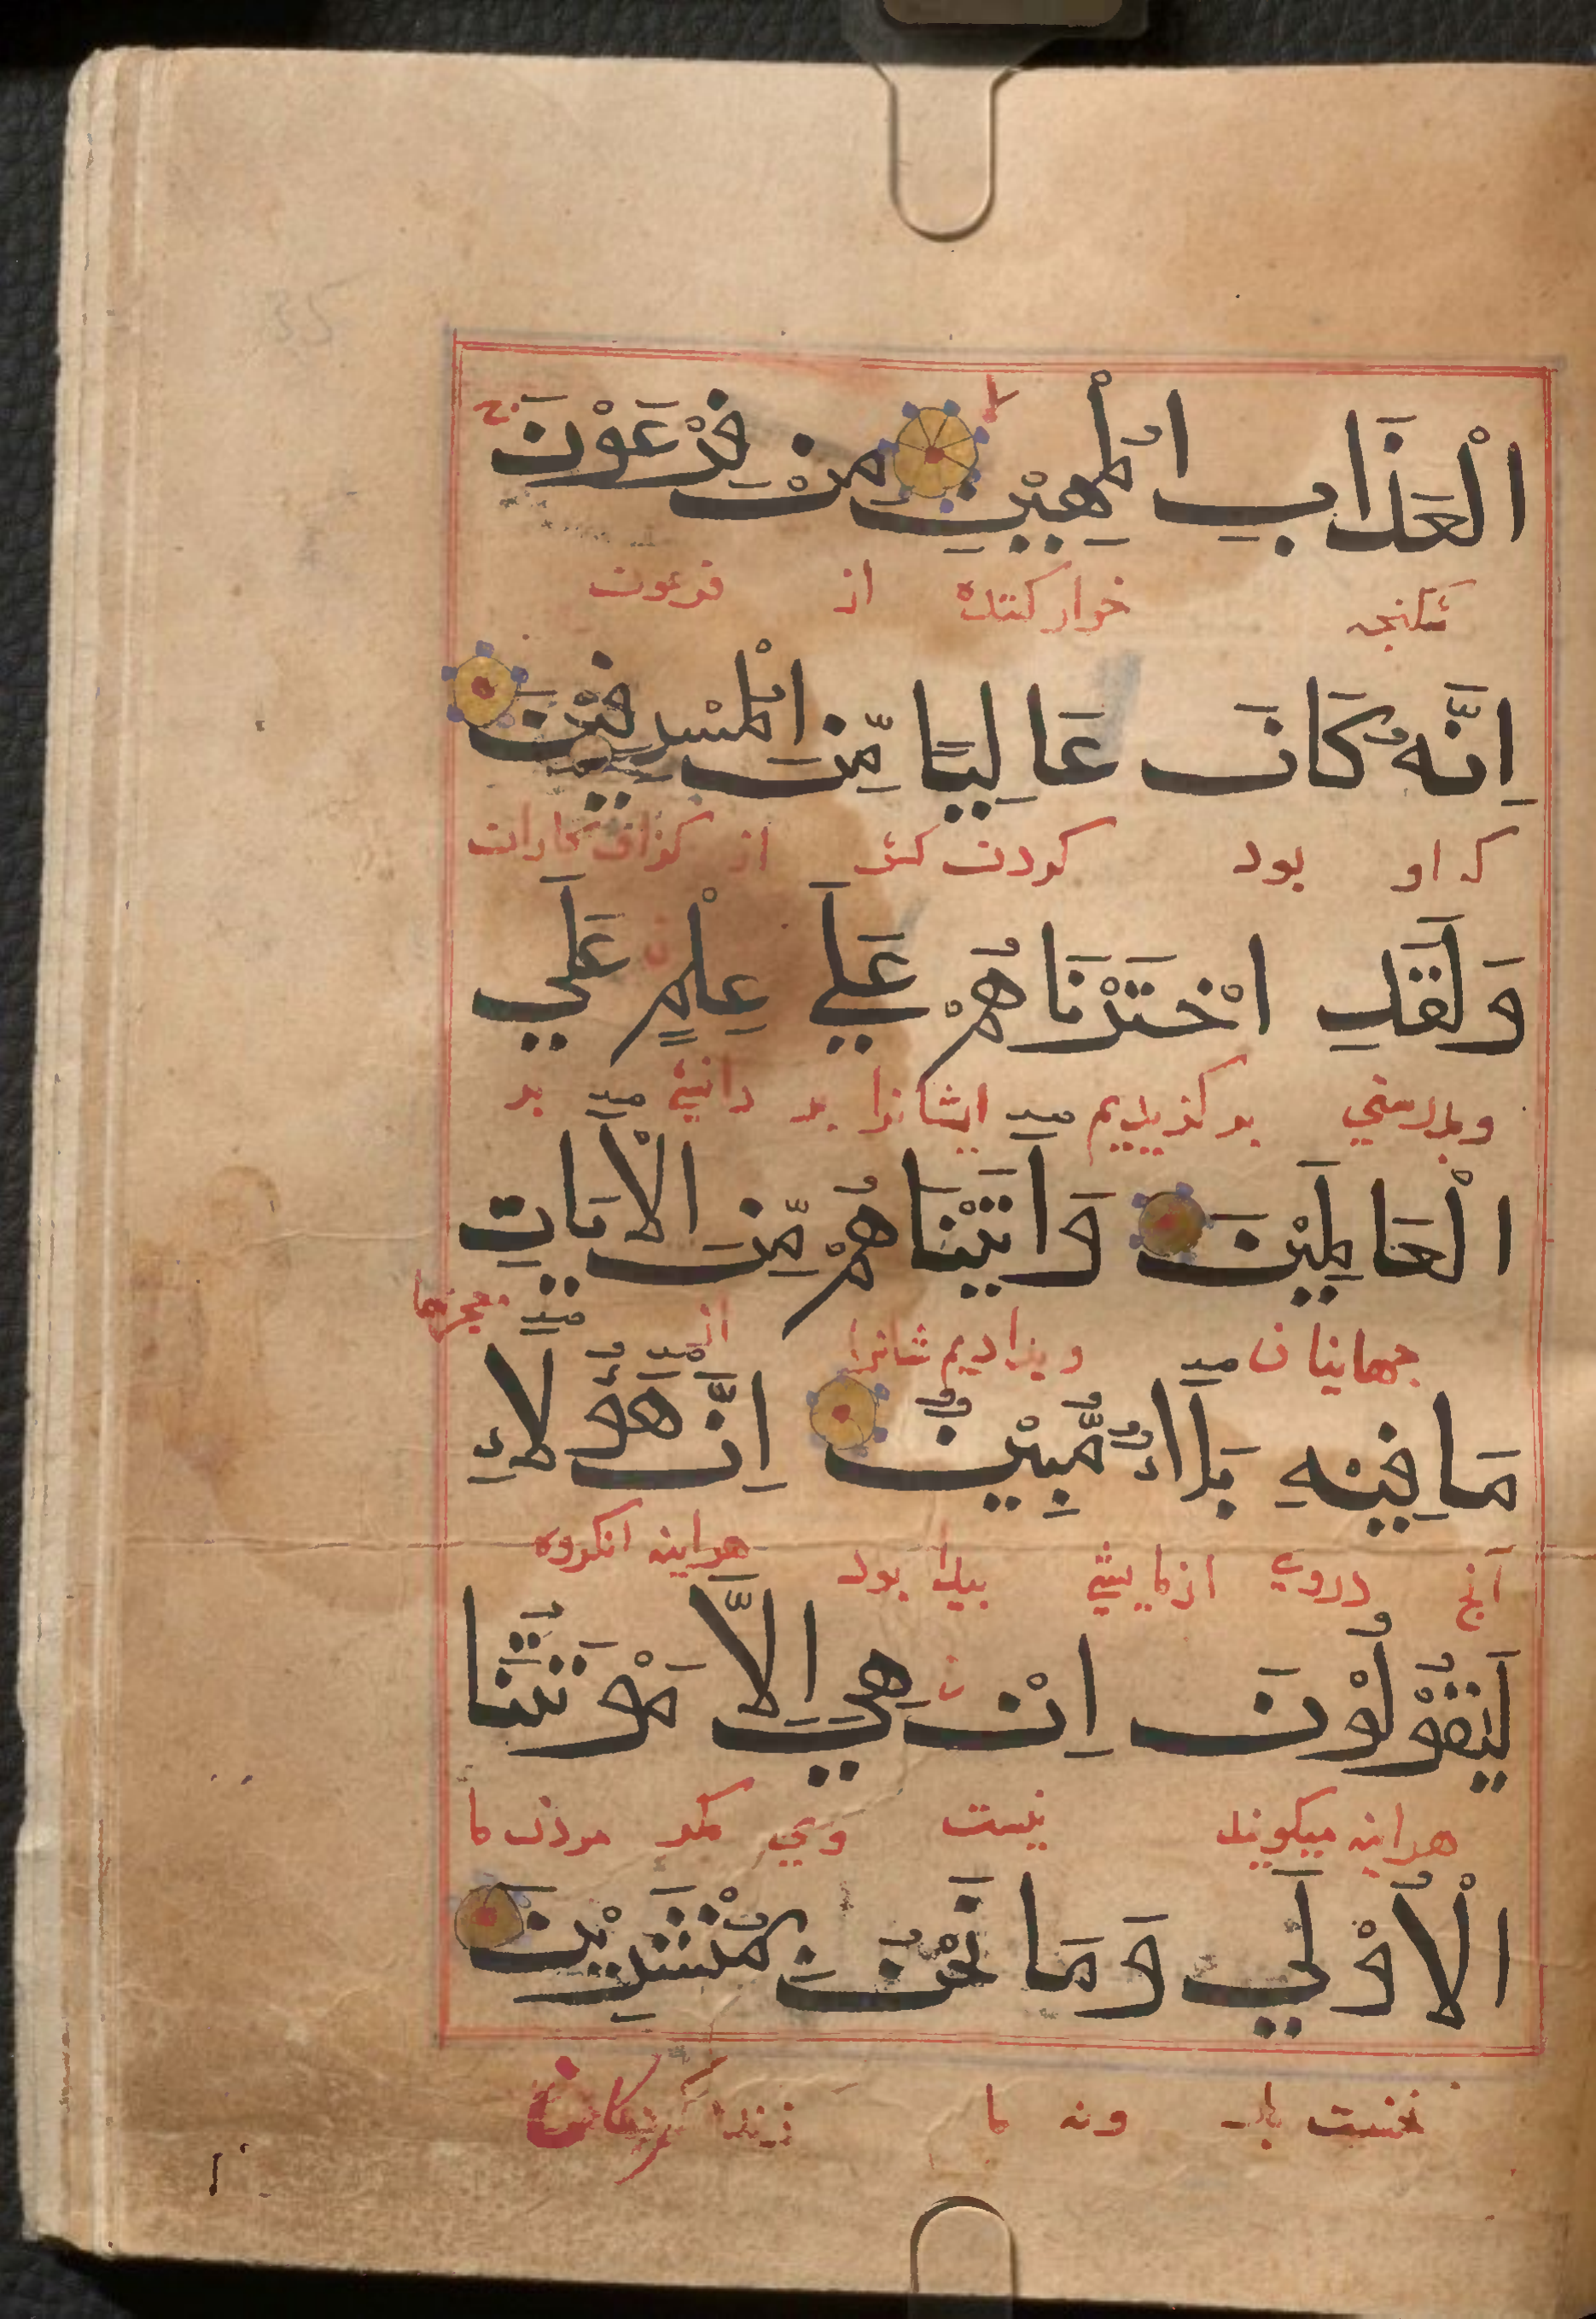 الْعَذَابِ الْمُهِيْنِ مِنْ فِرْعَوْنَ
شكنجه خوار كننده از فرعون
اِنَّهُ كَانَ عَالِيًا مِّنَ الْمُسْرِفِيْنَ
كه او بود كردن كش از كزاف كاران
وَلَقَدِ اخْتَرْنَاهُمْ عَلَي عِلْمٍ عَلَي
وبدرستي بر كزيديم ايشانرا بر دانشي بر
الْعَالَمِيْنَ وَاٰتَيْنَاهُمْ مِّنَ الْاٰيَاتِ
جهانيان وبداديم شانرا از معجزها
مَا فِيْهِ بَلَاءٌ مُّبِيْنٌ اِنَّ هٰؤُلَاءِ
آنچ دروي ازمايشي پيدا بود هراينه انكروه
لَيَقُوْلُوْنَ اِنْ هِيَ اِلَّا مَوْتَتُنَا
هراينه ميكويند نيست وي مكر مردن ما
الْاُوْلَي وَمَا نَحْنُ بِمُنْشَرِيْنَ
نخست بار ونه ما زنده كردكان